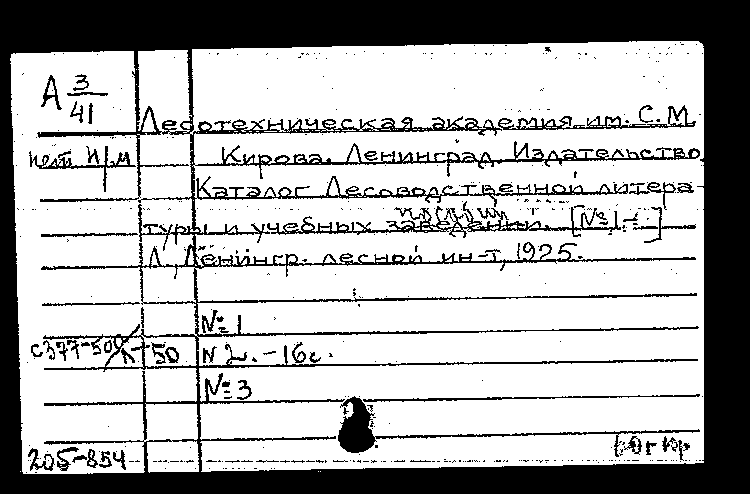 А 3/41
Лесотехническая академия им. С.М.
нет И/м
Кирова. Ленинград. Издательство.
Каталог Лесоводственной литера-
туры и учебных пособий. [№1- ]
Л., Ленингр. лесной ин-т, 1925.
№ 1
С377-50
Л-50 № 2. - 16 с.
№ 3
205-854